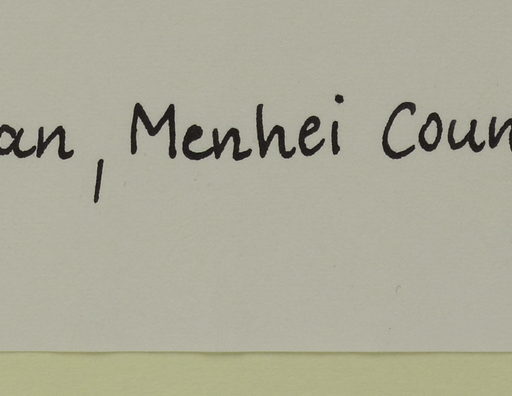 an, Menhei Coun